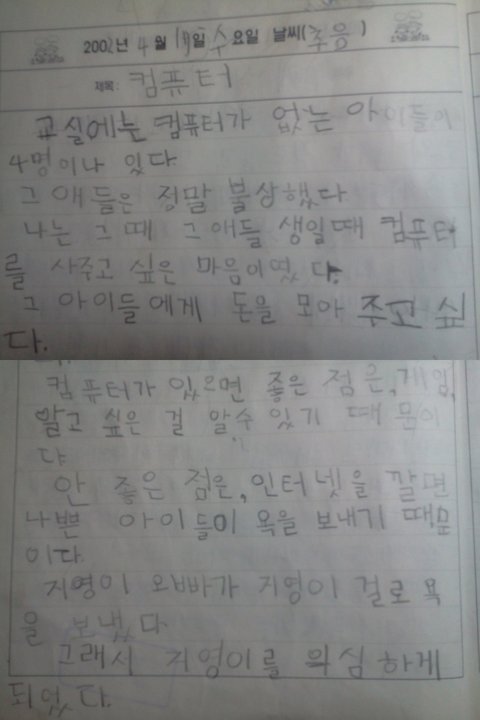 2002년 4월 17일 수요일 날씨(추웅)
제목: 컴퓨터
교실에눈 컴퓨터가 없는 아이들이
4명이나 있다
그 애들은 정말 불상했다
나는 그때 그애들 생일때 컴퓨터
를 사주고 싶은 마음이였다.
그 아이들에게 돈을 모아 주고 싶
다.
컴퓨터가 있으면 좋은 점은, 게임,
알고 싶은 걸 알수 있기 때문이
다
안 좋은 점은, 인터넷을 깔면
나쁜 아이들이 욕을 보내기 때문
이다.
지영이 오빠가 지영이 걸로 욕
을 보냈다
그래서 지영이를 의심하게
되었다.